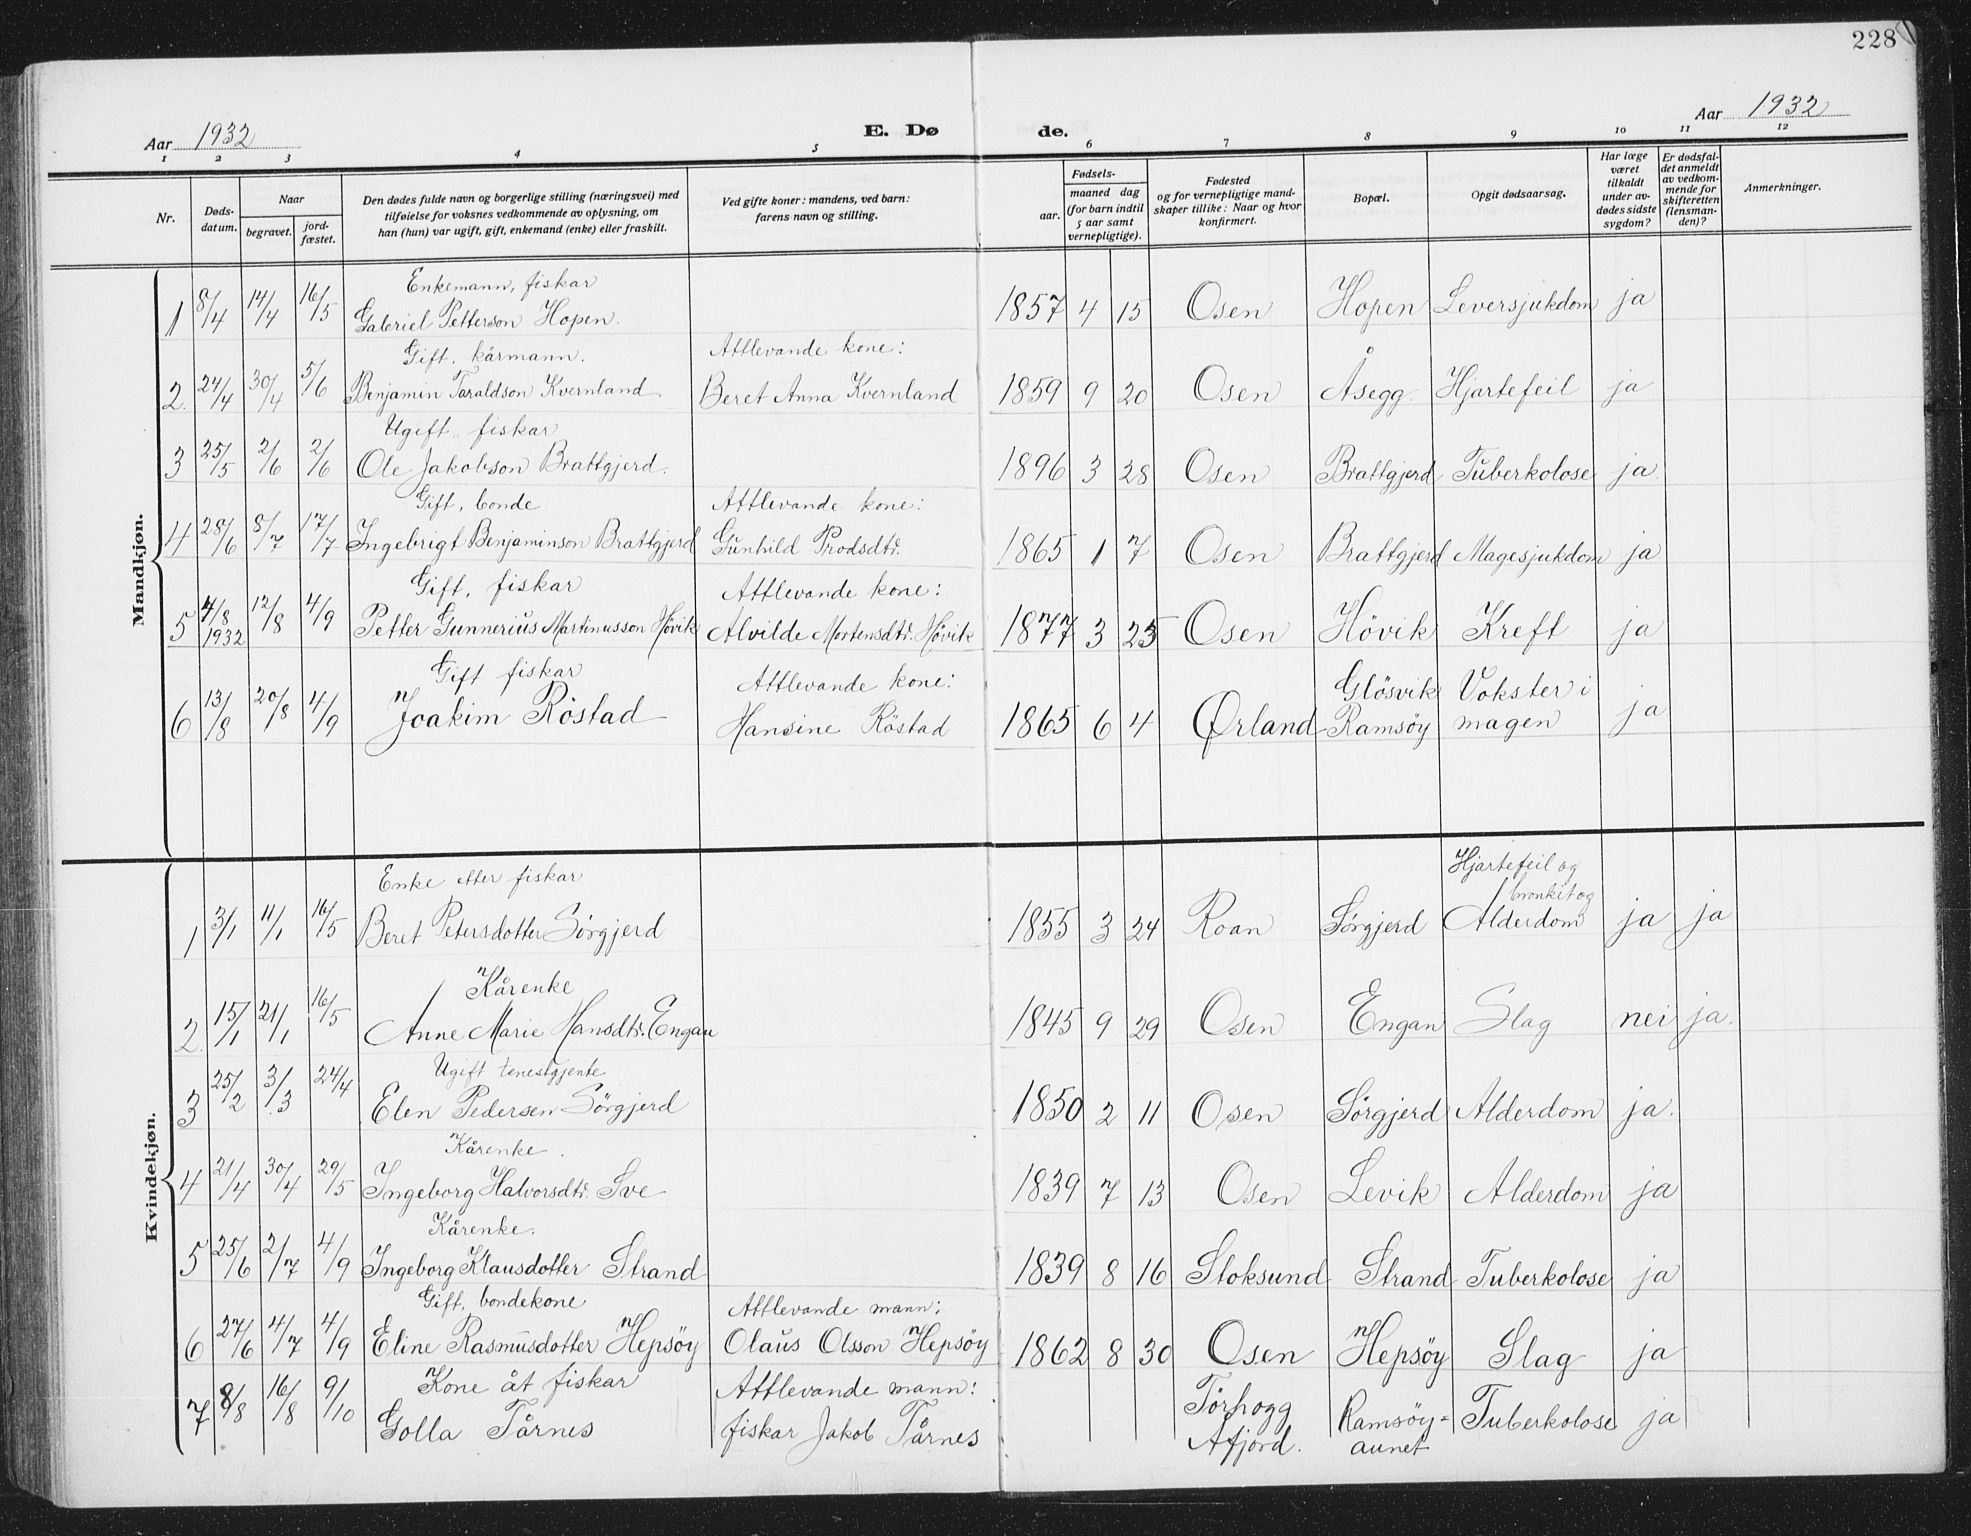 228
Aar 1932
E. Dø
de.
Aar 1932
1 2 3 4 5 6 7 8 9 10 11 12
Nr.
Døds-
datum.
Naar
begravet.
jord-
fæstet.
Den dødes fulde navn og borgerlige stilling (næringsvei) med
tilføielse for voksnes vedkommende av oplysning, om
han (hun) var ugift, gift, enkemand (enke) eller fraskilt.
Ved gifte koner: mandens, ved barn:
farens navn og stilling.
Fødsels-
aar.
maaned dag
(for barn indtil
5 aar samt
vernepligtige).
Fødested
og for vernepligtige mand-
skaper tillike: Naar og hvor
konfirmert.
Bopæl.
Opgit dødsaarsag.
Har læge
været
tilkaldt
under av-
dødes sidste
sygdom?
Er dødsfal-
det anmeldt
av vedkom-
mende for
skifteretten
(lensman-
den)?
Anmerkninger.
Mandkjøn.
Enkemann, fiskar
1 8/4 14/4 16/5 Gabriel Petterson Hopen. 1857 4 15 Osen Hopen Leversjukdom ja
Gift, kårmann. Attlevande kone:
2. 24/4 30/4 5/6 Benjamin Taraldson Kvernland Beret Anna Kvernland 1859 9 20 Osen Åsegg. Hjartefeil ja
Ugift fiskar
3 25/5 2/6 2/6 Ole Jakobson Brattgjerd. 1896 3 28 Osen Brattgjerd Tuberkolose ja
Gift, bonde Attlevande kone:
4 28/6 8/7 17/7 Ingebrigt Benjaminson Brattgjerd Gunhild Prodsdtr. 1865 1 7 Osen Brattgjerd Magesjukdom ja
Gift, fiskar Attlevande kone:
5 4/8 1932 12/8 4/9 Petter Gunnerius Martinusson Hövik Alvilde Mortensdtr. Hövik 1877 3 25 Osen Hövik Kreft ja
Gift fiskar Attlevande kone: Glösvik Vokster i
6 13/8 20/8 4/9 Joakim Röstad Hansine Röstad 1865 6 4 Ørland Ramsöy magen ja
Kvindekjøn.
Enke etter fiskar Hjartefeil og
bronkit og
1 3/1 11/1 16/5 Beret Petersdotter Sörgjerd 1855 3 24 Roan Sörgjerd Alderdom ja ja
Kårenke
2. 15/1 21/1 16/5 Anne Marie Hansdtr. Engan 1845 9 29 Osen Engan Slag nei ja.
Ugift tenestgjente
3 25/2 3/3 24/4 Elen Pedersen Sörgjerd 1850 2 11 Osen Sörgjerd Alderdom ja.
Kårenke.
4 21/4 30/4 29/5 Ingeborg Halvorsdtr. Sve 1839 7 13 Osen Levik Alderdom ja
Kårenke.
5 25/6 2/7 4/9 Ingeborg Klausdotter Strand 1839 8 16 Stoksund Strand Tuberkolose ja
Gift, bondekone Attlevande mann:
6 27/6 4/7 4/9 Eline Rasmusdotter Hepsöy Olaus Olsson Hepsöy 1862 8 30 Osen Hepsöy Slag ja
Kone åt fiskar Attlevande mann: Törhogg
7 8/8 16/8 9/10 Golla Tårnes fiskar Jakob Tårnes Afjord. Ramsöy=
aunet Tuberkolose ja